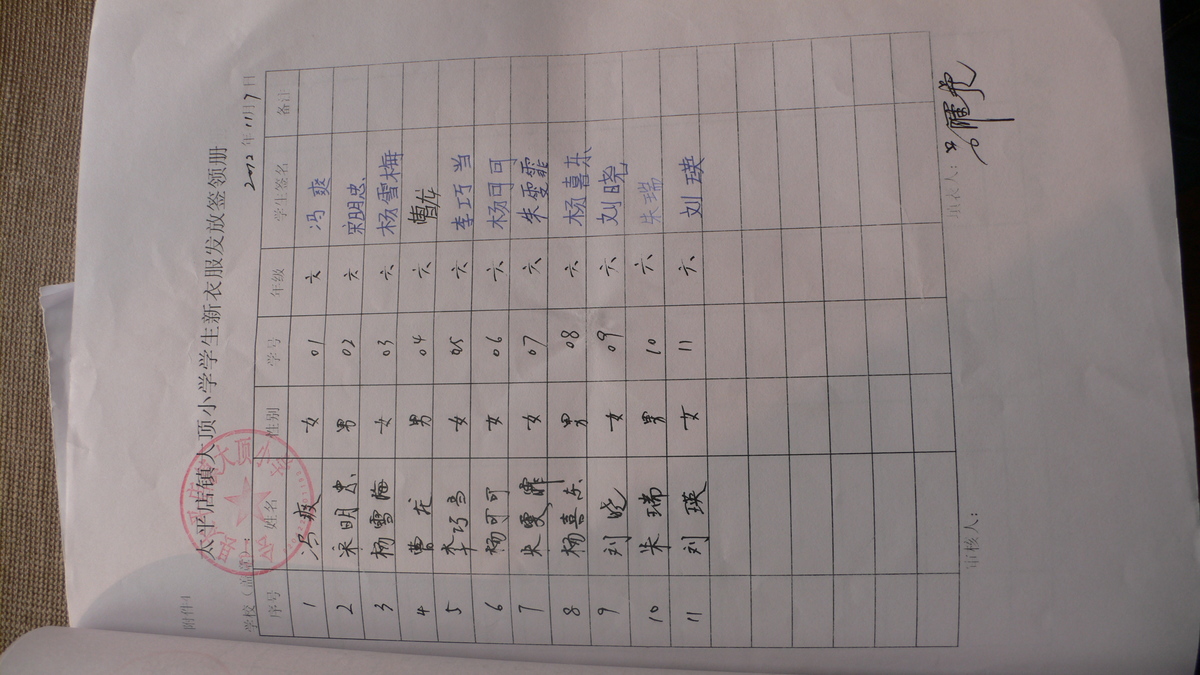 附件4
太平店镇大顶小学学生新衣服发放签领册
学校（盖章）： 2012年11月7日
序号 姓名 性别 学号 年级 学生签名 备注
1 冯爽 女 01 六 冯爽
2 宋明忠 男 02 六 宋明忠
3 杨雪梅 女 03 六 杨雪梅
4 曹龙 男 04 六 曹龙
5 李巧当 女 05 六 李巧当
6 杨可可 女 06 六 杨可可
7 朱雯霏 女 07 六 朱雯霏
8 杨喜乐 男 08 六 杨喜乐
9 刘晓 女 09 六 刘晓
10 朱瑞 男 10 六 朱瑞
11 刘瑛 女 11 六 刘瑛
审核人： 填表人：
大顶小学